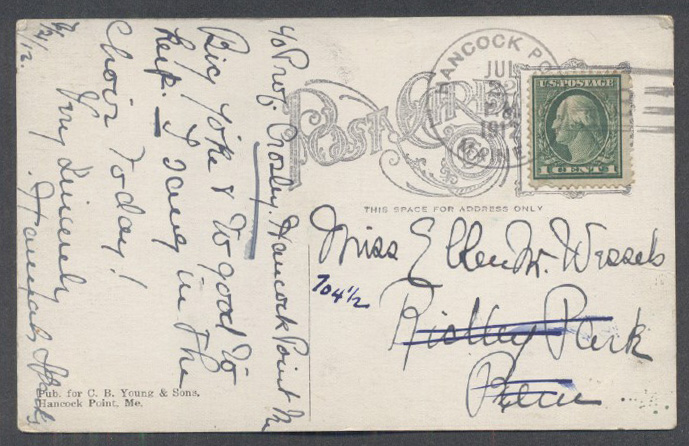 c/o Prof. Crosley. Hancock Point Me
Big joke & to good to
keep. I sang in the
Choir today!
Very Sincerely
7/21/12.
POST CARD
HANCOCK POINT
JUL
1912
MAINE
U.S. POSTAGE
1 CENT 1
THIS SPACE FOR ADDRESS ONLY
Miss Ellen M. Wessels
704 1/2
Ridley Park
Penn
Pub. for C. B. Young & Sons,
Hancock Point, Me.